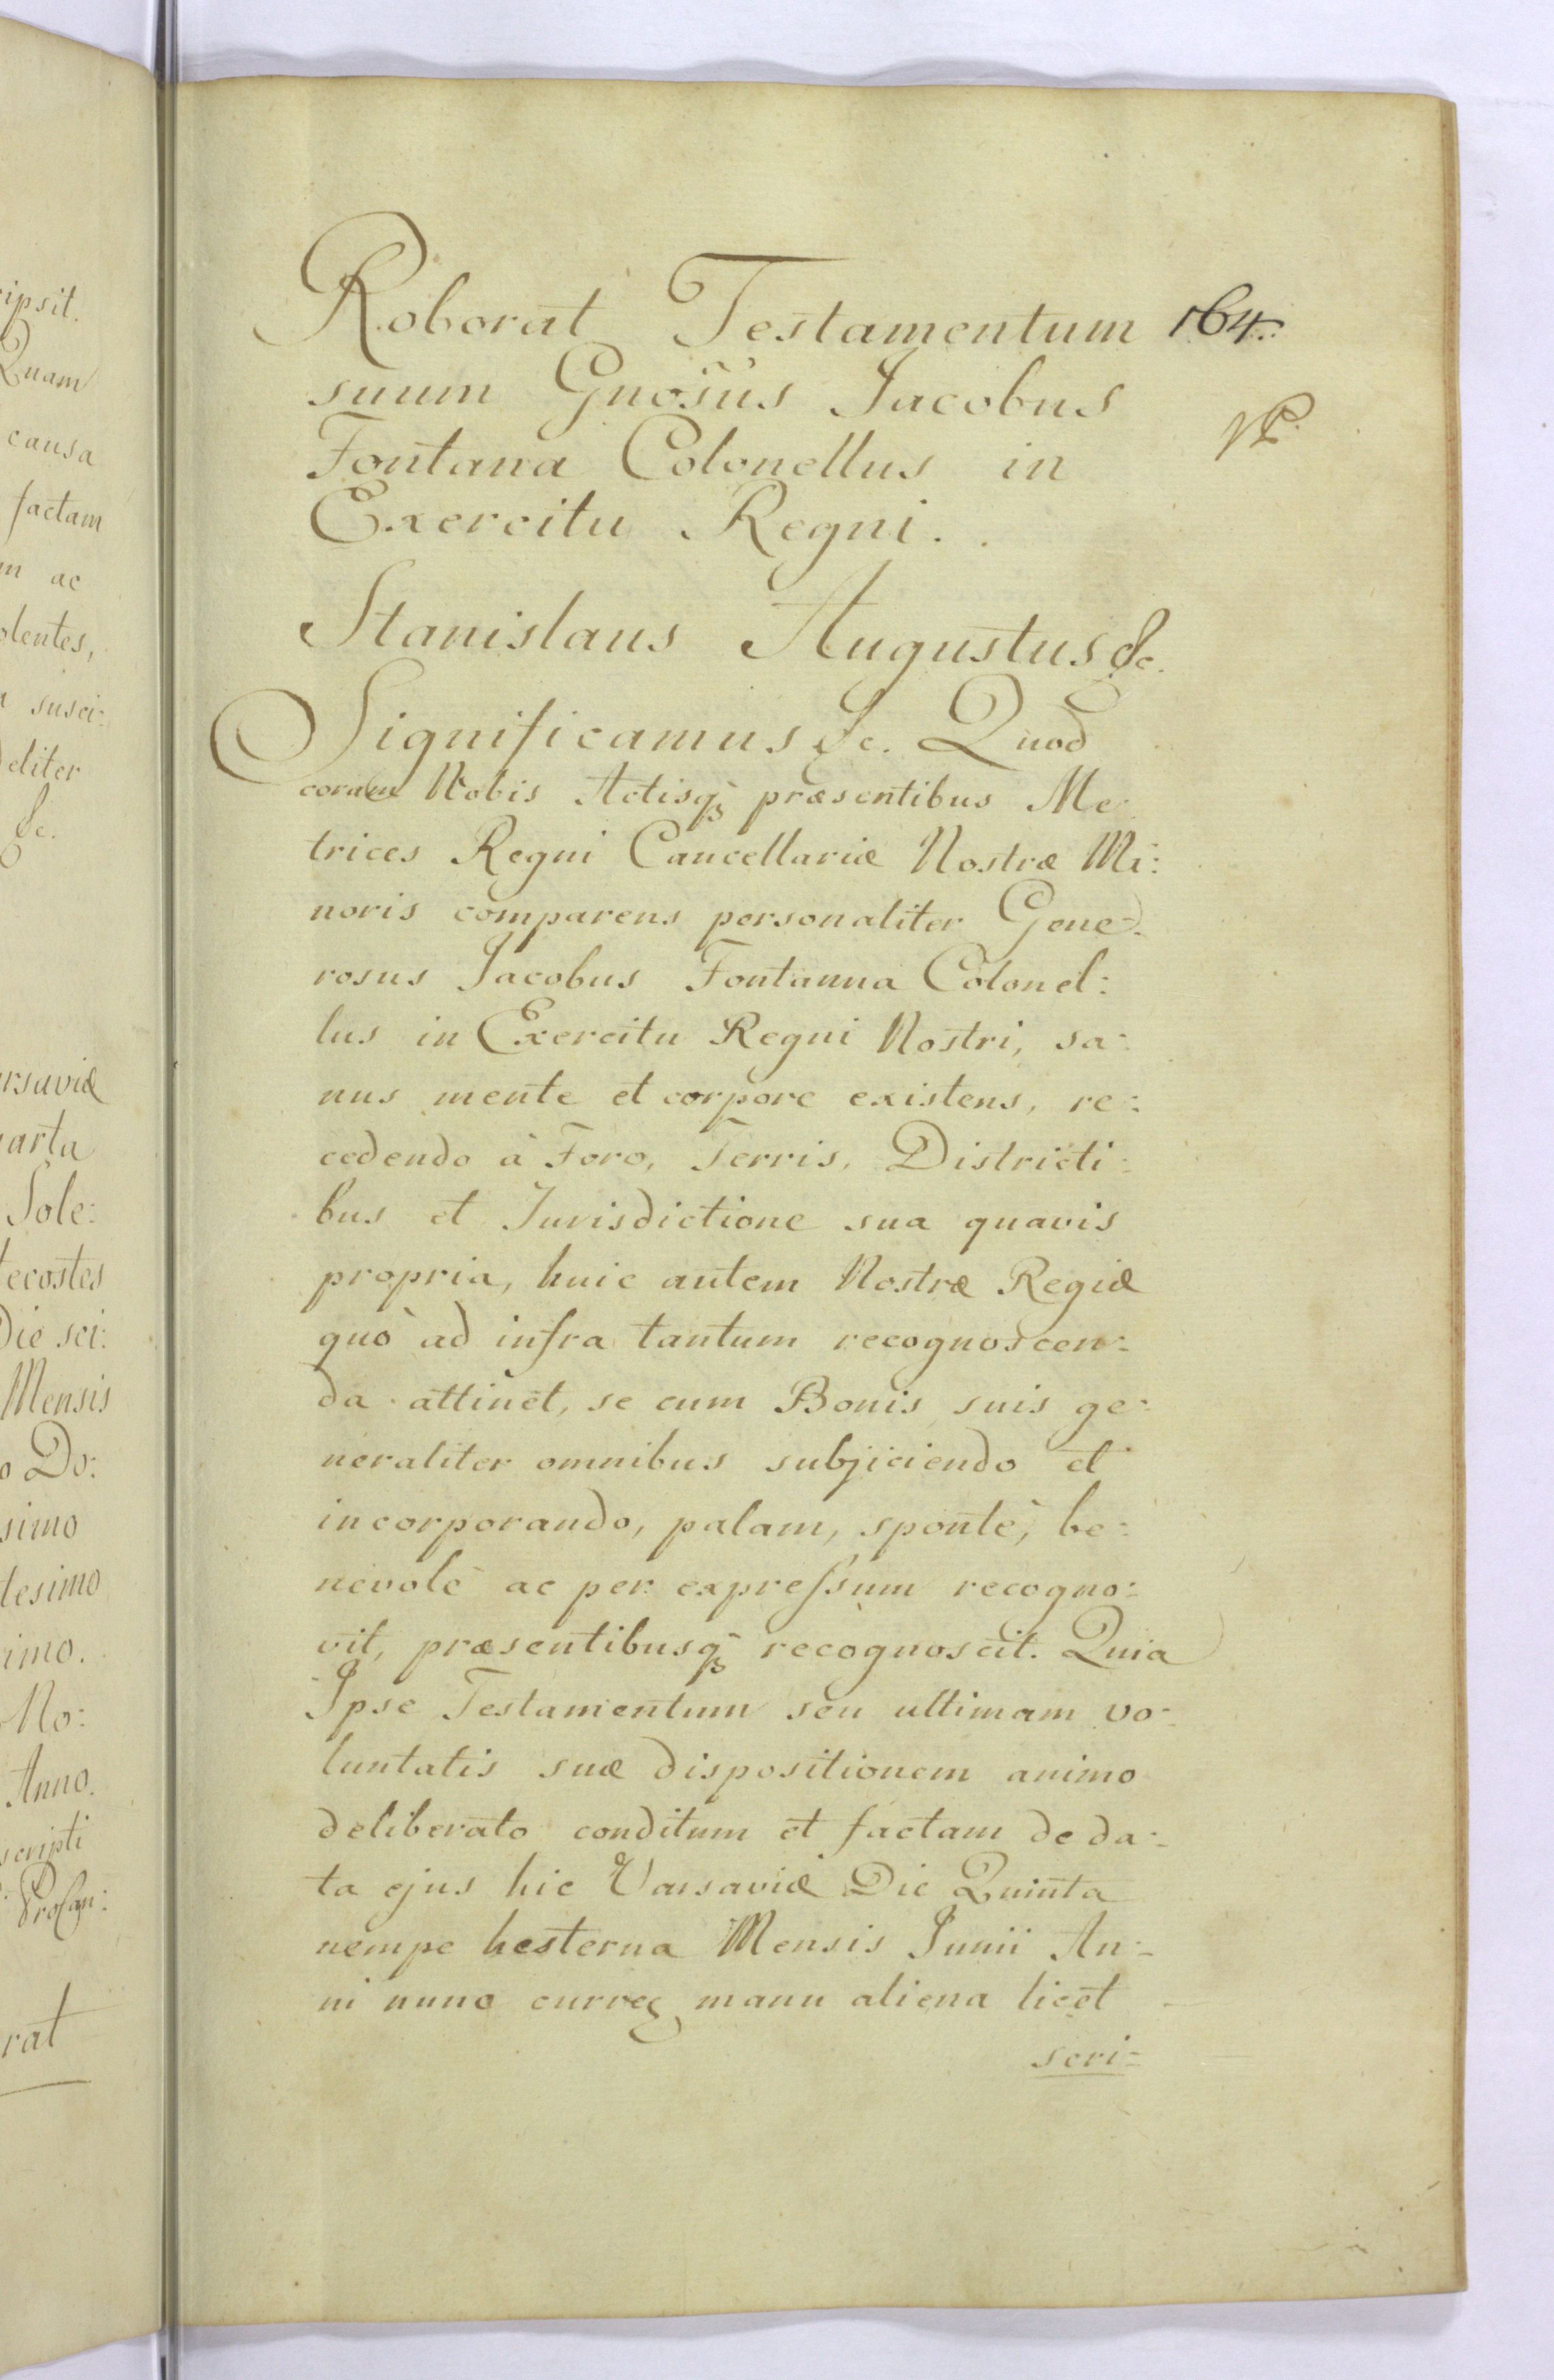 ipsit.
Quam
causa
factam
m ac
olentes,
a susci:
deliter
&c.
arsaviæ
arta
Sole:
tecostes
Die sci:
Mensis
o Do:
simo
tesimo
imo.
No:
Anno.
scripti
rat
Roborat Testamentum 164.
suum Gnosus Jacobus
Fontana Colonellus in
Exercitu Regni..
Stanislaus Augustus &c.
Significamus &c. Quod
coram Nobis Actisq̃ præsentibus Me
trices Regni Cancellariæ Nostræ Mi:
noris comparens personaliter Gene:
rosus Jacobus Fontanna Colonel:
lus in Exercitu Regni Nostri, sa:
nus mente et corpore existens, re:
cedendo à Foro, Terris, Districti:
bus et Jurisdictione sua quavis
propria, huic autem Nostræ Regiæ
quò ad infra tantum recognoscen:
da attinet, se cum Bonis suis ge:
neraliter omnibus subjiciendo et
incorporando, palam, spontè, be:
nevolè ac per expreſsum recogno:
vit, præsentibusq̃ recognoscit. Quia
Ipse Testamentum seu ultimam vo:
luntatis suæ dispositionem animo
deliberato conditum et factam de da:
ta ejus hic Varsaviæ Die Quinta
nempe hesterna Mensis Junii An:
ni nunc curreñ manu aliena licet
scri: